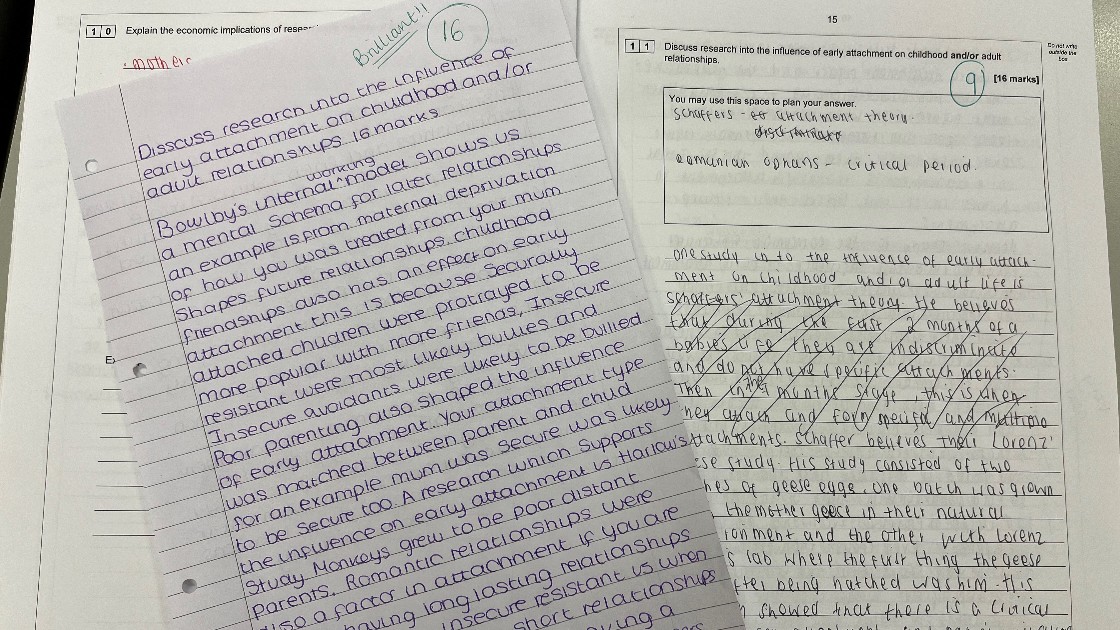 1 0 Explain the economic implications of
· mother
E
Brilliant!!
16
Disscuss research into the influence of
early attachment on chuidhood and/or
adult relationships. 16 marks
Bowlby's internal working model shows us
a mental Schema for later relationships
an example is from maternal deprivation
of how you was treated from your mum
shapes future relationships. childhood
friendships also has an effect on early
attachment this is because securally
attached children were protrayed to be
more popular with more friends, Insecure
resistant were most likely bullies and
Insecure avoidants were likely to be bullied.
Poor parenting also shaped the influence
of early attachment. Your attachment type
was matched between parent and child
for an example mum was secure was likely
to be secure too. A research which supports
the influence on early attachment is Harlow's
study Monkeys grew to be poor distant
parents. Romantic relationships were
also a factor in attachment if you are
having long lasting relationships
insecure resistant is when
short relationships
a
15
1 1 Discuss research into the influence of early attachment on childhood and/or adult
relationships.
[16 marks]
9
Do not write
outside the
box
You may use this space to plan your answer.
Schaffers - attachment theory.
romanian ophans - critical period.
one study in to the influence of early attach-
ment on childhood and/or adult life is
schaffers' attachment theory He believes
that during the first 2 months of a
babies life they are indiscriminate
and do not have specific attachments.
Then in the months stage, this is when
they attach and form specific and multiple
attachments. Schaffer believes their Lorenz'
geese study. His study consisted of two
of geese eggs. one batch was grown
the mother geese in their natural
and the other with Lorenz
lab where the first thing the geese
being hatched was him. this
showed that there is a critical